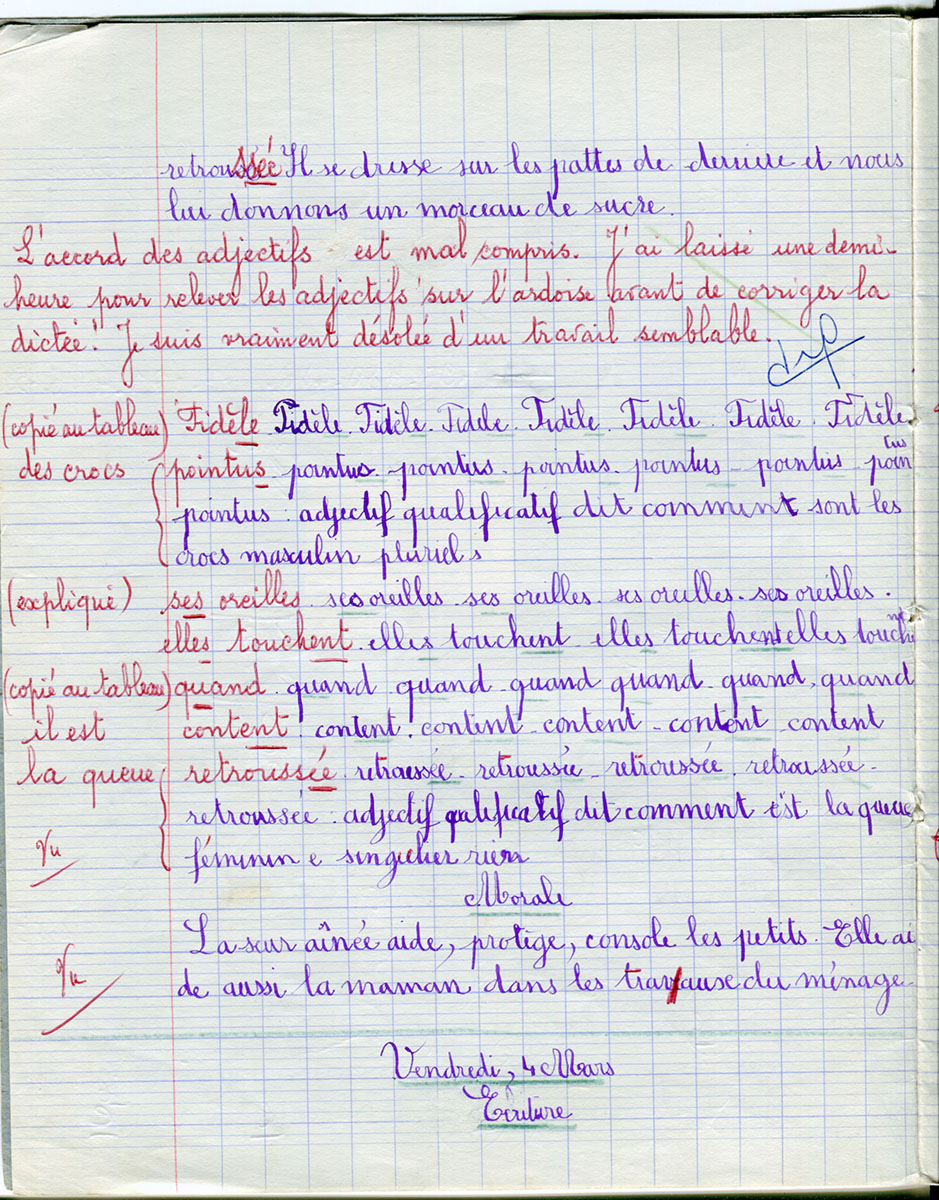 retroussée Il se dresse sur les pattes de derriere et nous
lui donnons un morceau de sucre.
L'accord des adjectifs est mal compris. J'ai laissé une demi-
heure pour relever les adjectifs sur l'ardoise avant de corriger la
dictée! Je suis vraiment désolée d'un travail semblable.
(copié au tableau) Fidèle Fidèle. Fidèle. Fidèle. Fidèle. Fidèle. Fidèle. Fidèle.
des crocs pointus pointus pointus. pointus. pointus pointus poin
tus
pointus : adjectif qualificatif dit comment sont les
crocs masculin pluriel s
(expliqué) ses oreilles. ses oreilles. ses oreilles. ses oreilles. ses oreilles.
elles touchent. elles touchent elles touchent elles touche
nt
(copié au tableau) quand. quand quand. quand quand. quand, quand
il est content. content. content. content. content content
la queue retroussée. retroussée. retroussée. retroussée. retroussée.
retroussée. adjectif qualificatif dit comment est la queue
vu féminin e singulier rien
Morale
La sœur aînée aide, protège, console les petits. Elle ai
vu de aussi la maman dans les travause du ménage.
Vendredi, 4 Mars
Ecriture